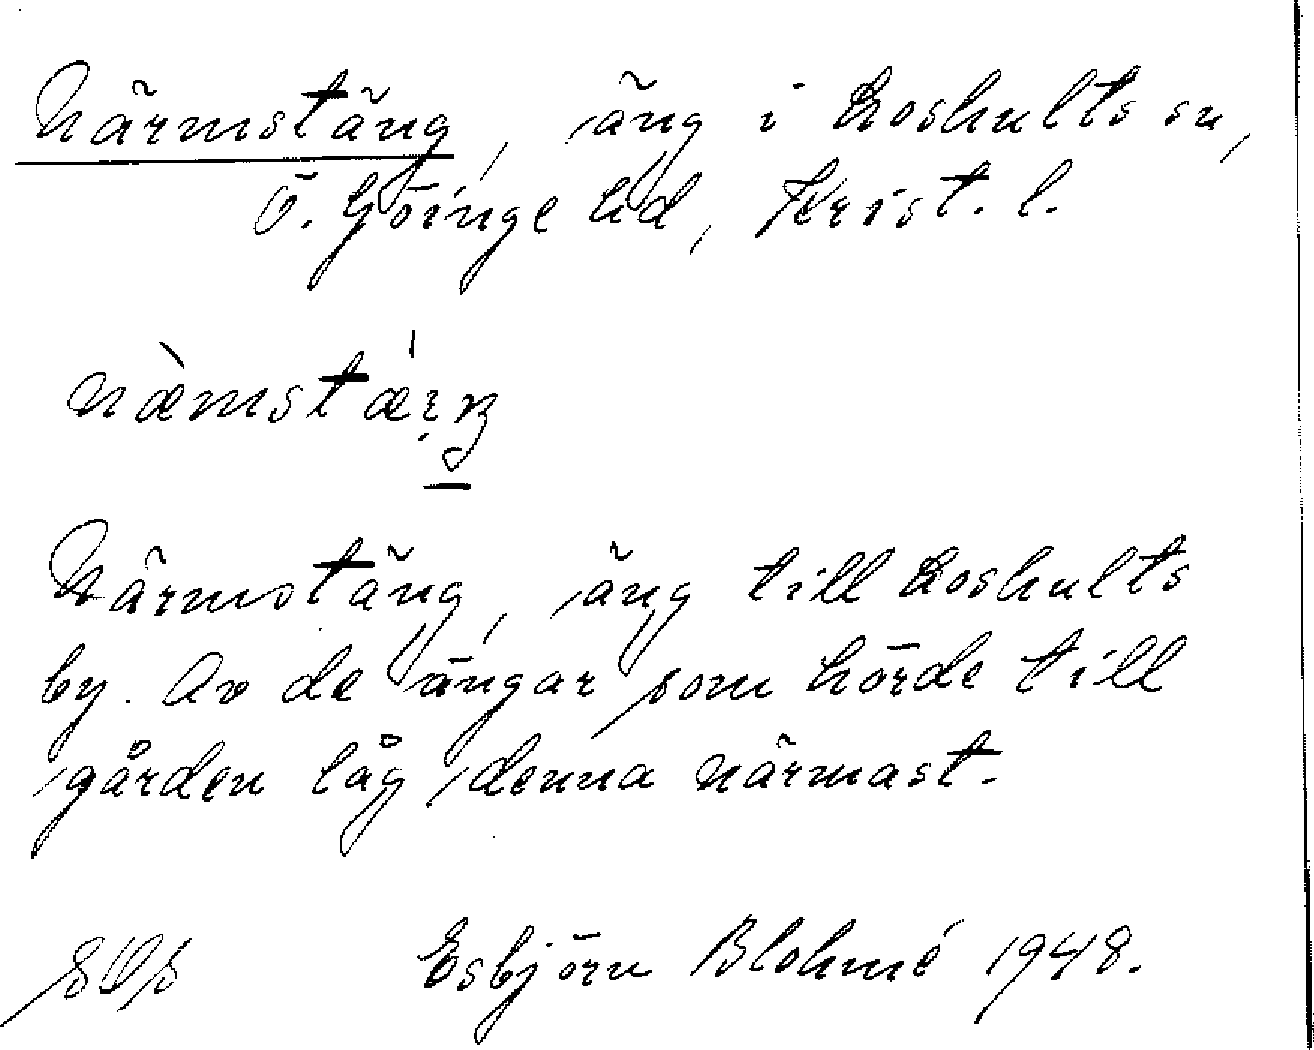 Närmstäng, äng i Loshults sn,
Ö. Göinge hd, Krist. l.
Närmstäng, äng till Loshults
by. Av de ängar som hörde till
gården låg denna närmast.
Esbjörn Blohmé 1948.